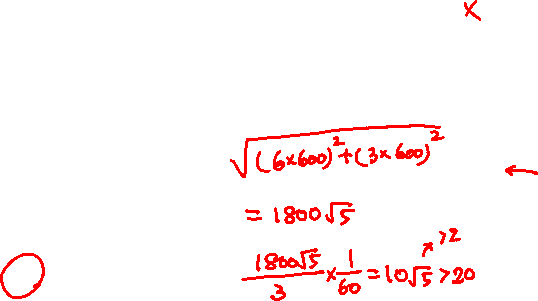 x
√((6×600)²+(3×600)²)
=1800√5
>2
1800√5/3 × 1/60 = 10√5 > 20